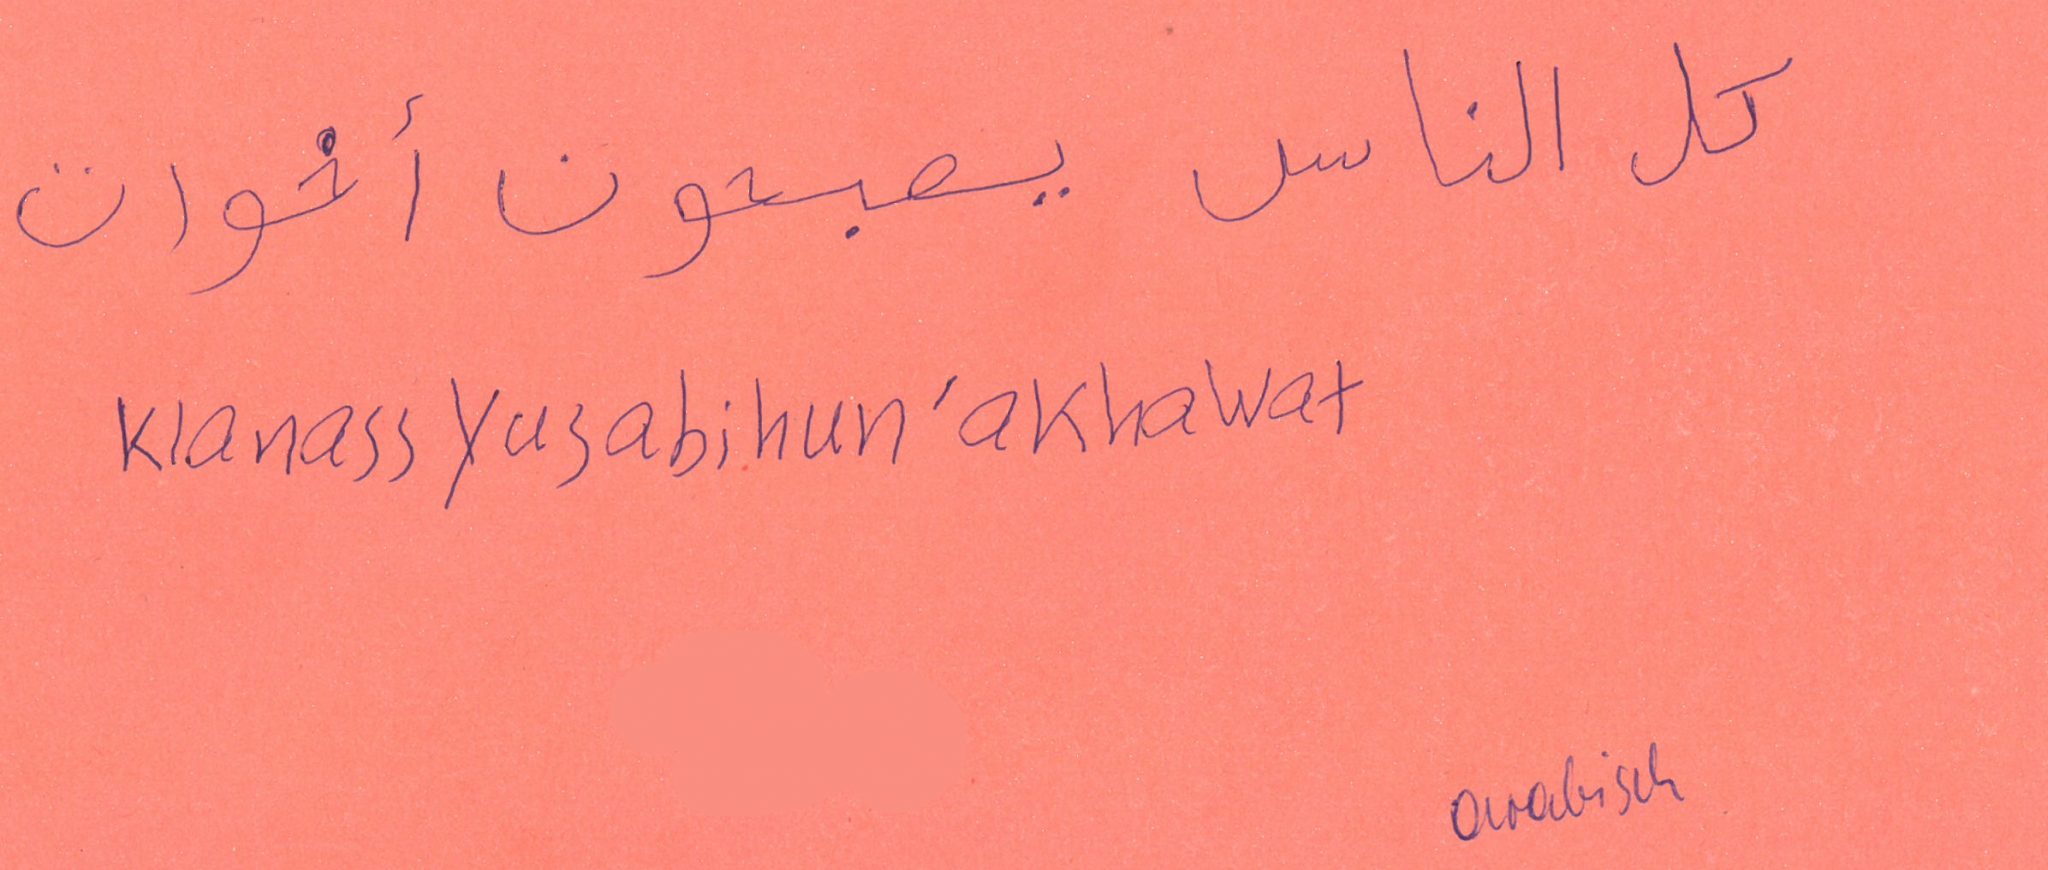 كل الناس يصبحون أخوات
Klanass yusabihun 'akhawat
arabisch